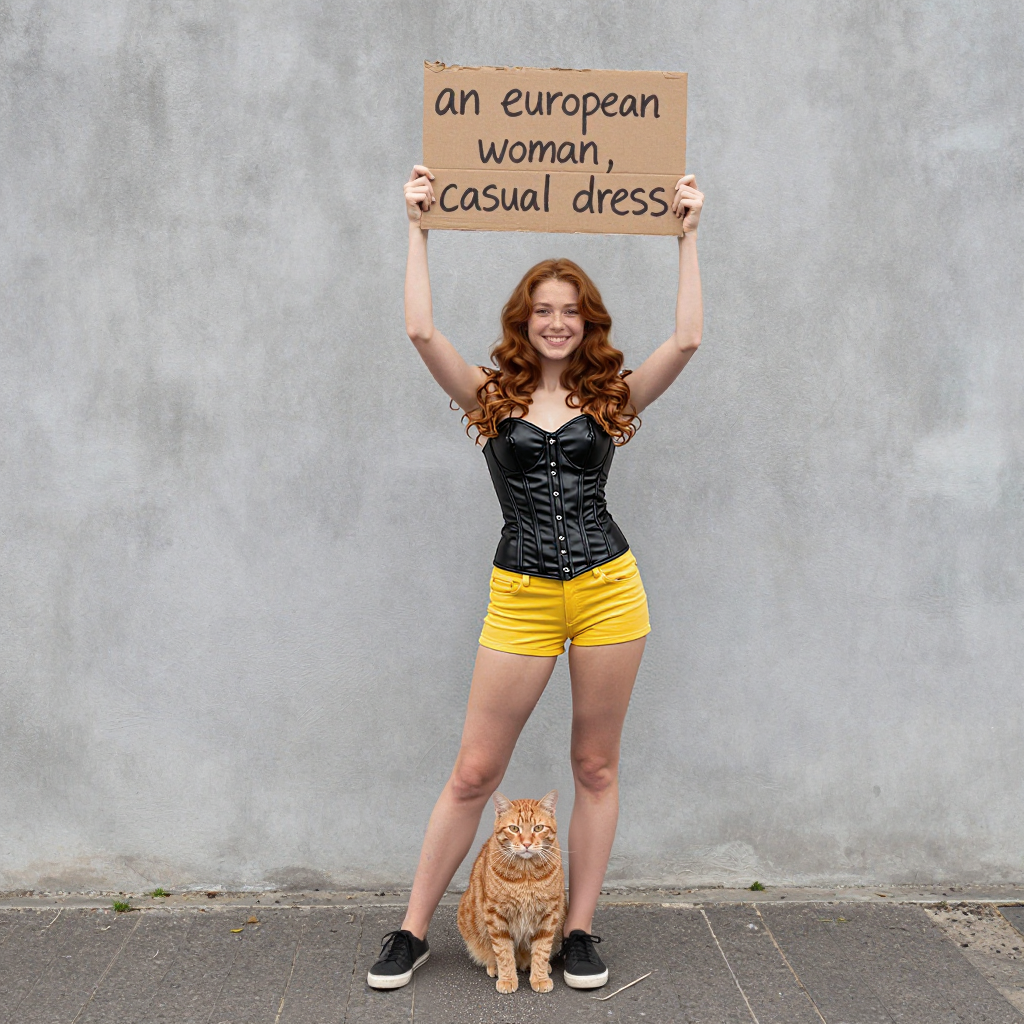 an european
woman,
casual dress